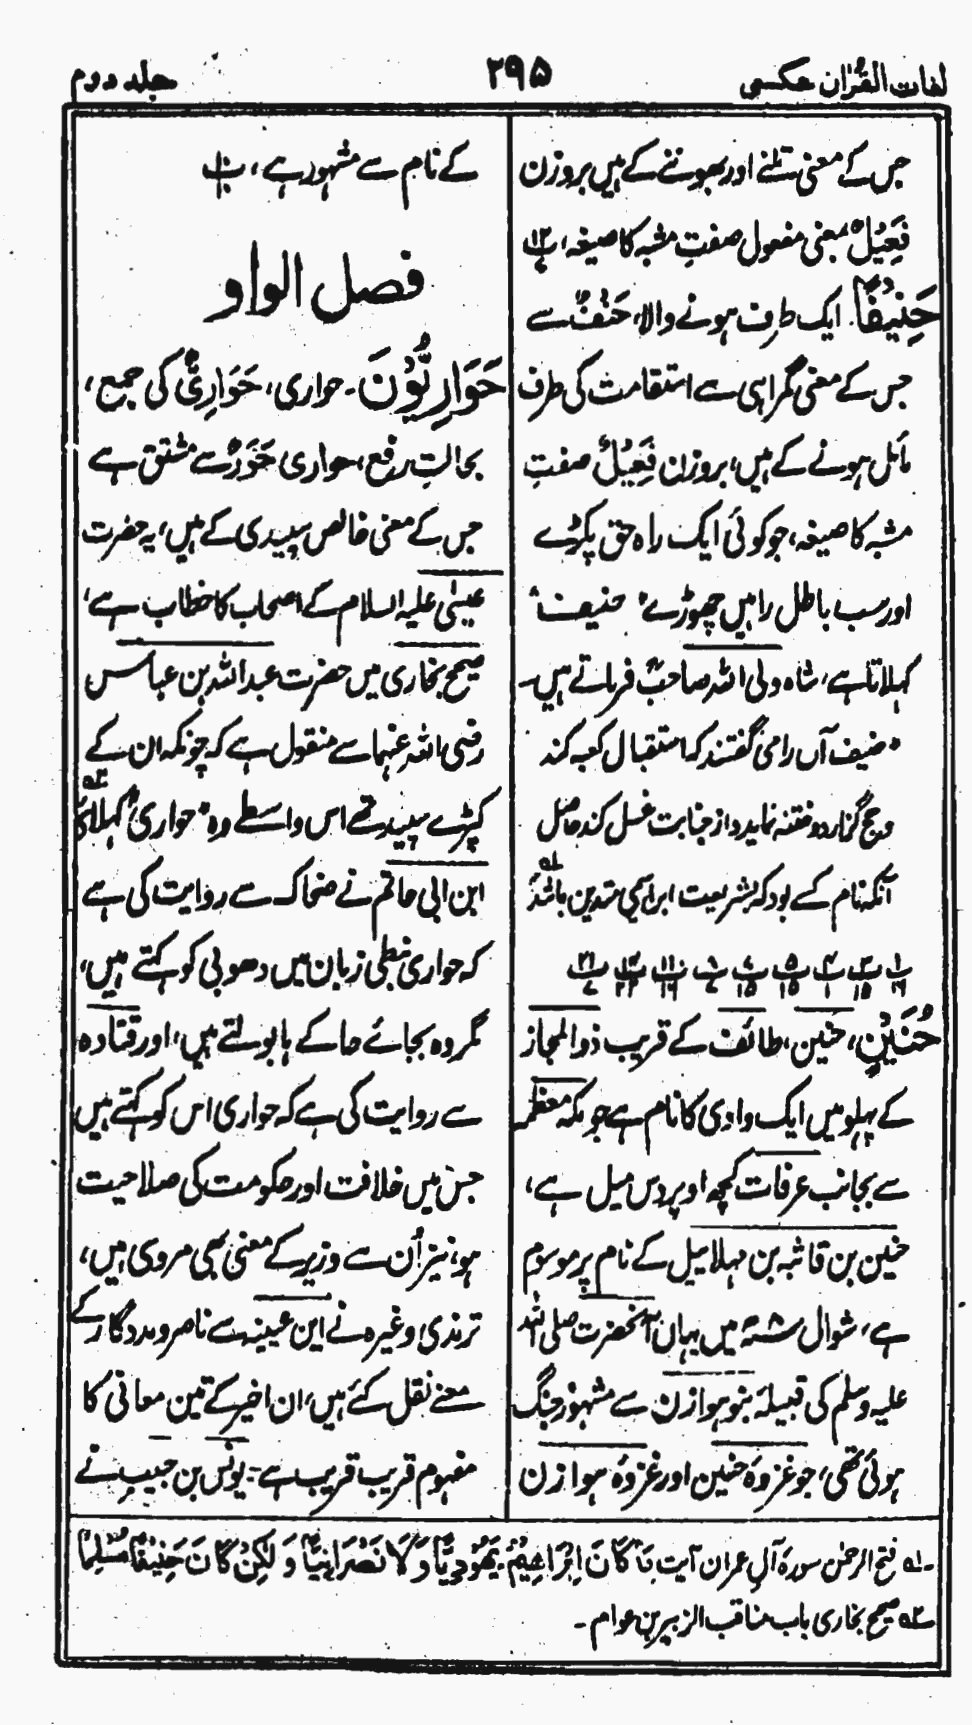 لغات القرآن عکسی
۲۹۵
جلد دوم
جس کے معنی تلنے اور بھوننے کے ہیں بروزن
فَعِیْلٌ بمعنی مفعول صفتِ مشبہ کا صیغہ،
حَنِیْفًا ۔ ایک طرف ہونے والا، حَنْفٌ سے
جس کے معنی گمراہی سے استقامت کی طرف
مائل ہونے کے ہیں، بروزن فَعِیْلٌ صفتِ
مشبہ کا صیغہ، جو کوئی ایک راہ حق پکڑے
اور سب باطل راہیں چھوڑے "حنیف"
کہلاتا ہے، شاہ ولی اللہ صاحبؒ فرماتے ہیں۔
"حنیف آں رامی گفتند کہ استقبال کعبہ کند
وحج گزارد و ختنہ نماید و از جنابت غسل کند حاصل
آنکہ نام کسے بود کہ بشریعت ابراہیمی متدین باشد" لہ
حُنَیْنٍ، حنین، طائف کے قریب ذوالمجاز
کے پہلو میں ایک وادی کا نام ہے جو مکہ معظمہ
سے بجانب عرفات کچھ اوپر دس میل ہے،
حنین بن قانثہ بن مہلاییل کے نام پر موسوم
ہے، شوال ۸ھ میں یہاں آنحضرت صلی اللہ
علیہ وسلم کی قبیلہ بنو ہوازن سے مشہور جنگ
ہوئی تھی، جو غزوۂ حنین اور غزوۂ ہوازن
کے نام سے مشہور ہے،
فصل الواو
حَوَارِیُّوْنَ ۔ حواری، حَوَارِیٌّ کی جمع،
بحالتِ رفع، حواری حَوَرٌ سے مشتق ہے
جس کے معنی خالص سپیدی کے ہیں، یہ حضرت
عیسٰی علیہ السلام کے اصحاب کا خطاب ہے،
صحیح بخاری میں حضرت عبداللہ بن عباس
رضی اللہ عنہما سے منقول ہے کہ چونکہ ان کے
کپڑے سپید تھے اس واسطے وہ "حواری" کہلائے ۲ھ
ابن ابی حاتم نے ضحاک سے روایت کی ہے
کہ حواری نبطی زبان میں دھوبی کو کہتے ہیں،
مگر وہ بجائے حا کے ہا بولتے ہیں، اور قتادہ
سے روایت کی ہے کہ حواری اس کو کہتے ہیں
جس میں خلافت اور حکومت کی صلاحیت
ہو، نیز اُن سے وزیر کے معنی بھی مروی ہیں،
ترمذی وغیرہ نے ابن عیینہ سے ناصر و مددگار کے
معنے نقل کئے ہیں، ان اخیر کے تین معانی کا
مفہوم قریب قریب ہے۔ یونس بن حبیب نے
۱ھ فتح الرحمٰن سورۂ آلِ عمران آیت مَا کَانَ اِبْرَاهِیْمُ یَهُوْدِیًّا وَّلَا نَصْرَانِیًّا وَّلٰکِنْ کَانَ حَنِیْفًا مُّسْلِمًا
۲ھ صحیح بخاری باب مناقب الزبیر بن عوام ۔